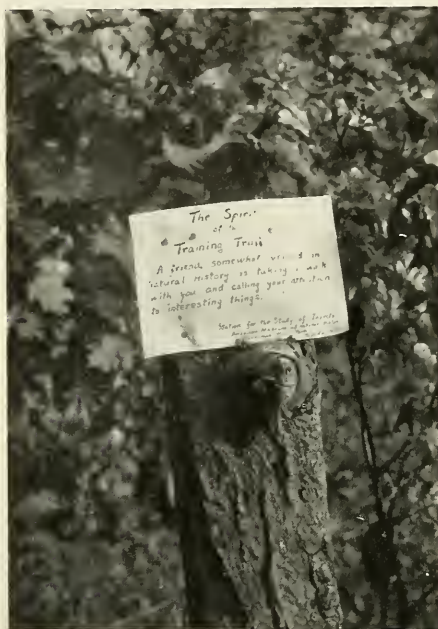 The Spirit
of the
Training Trail
A friend, somewhat versed in
natural history is taking a walk
with you and calling your attention
to interesting things.
Station for the Study of Insects
American Museum of Natural History